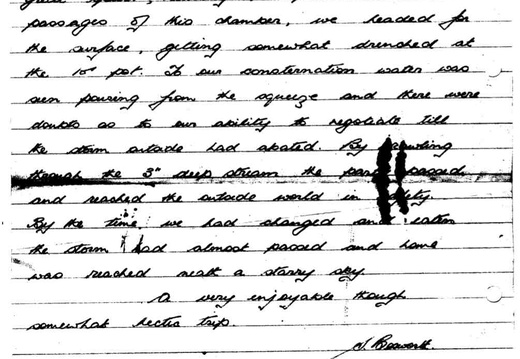 passages of this chamber, we headed for
the surface, getting somewhat drenched at
the 10' pot. To our consternation water was
seen pouring from the squeeze and there were
doubts as to our ability to negotiate till
the storm outside had abated. By crawling
through the 3" deep stream the party passed,
and reached the outside world in safety.
By the time we had changed and eaten
the storm had almost passed and home
was reached neath a starry sky
A very enjoyable though
somewhat hectic trip.